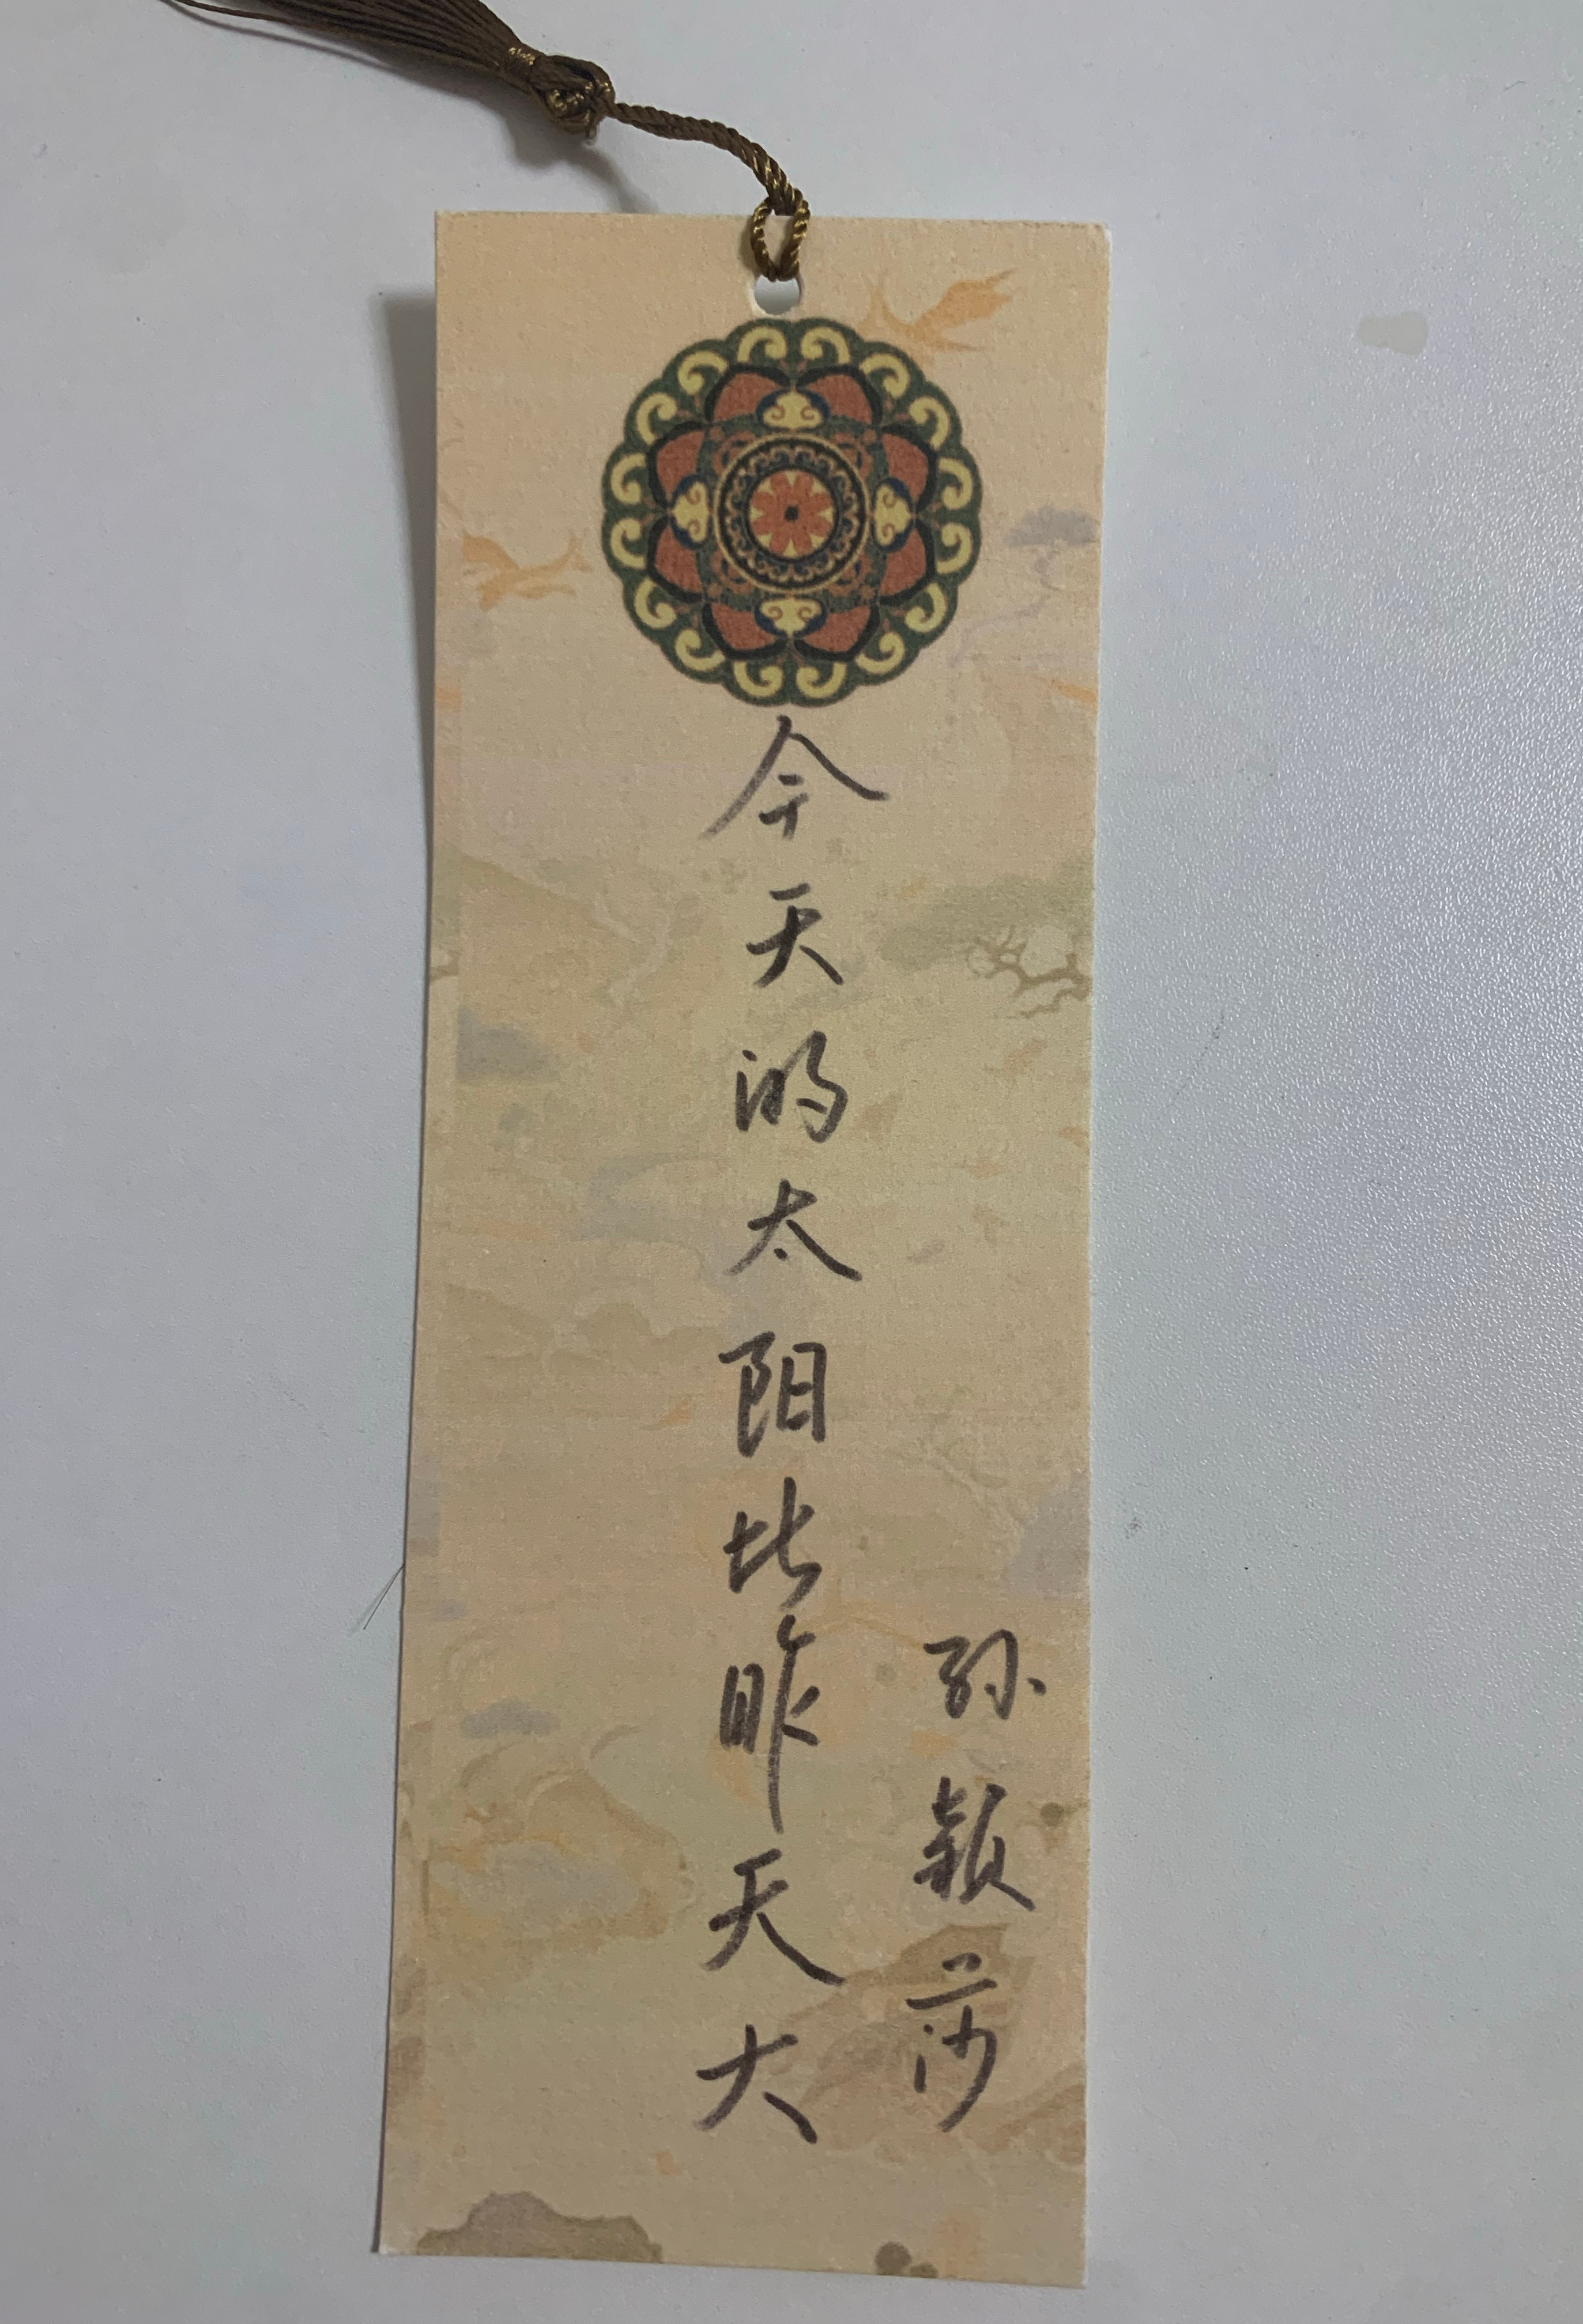 今天的太阳比昨天大
孙颖莎